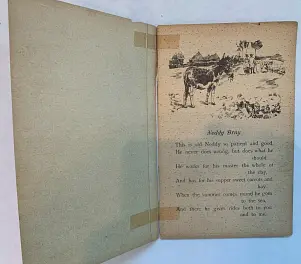 Neddy Bray
This is old Neddy so patient and good.
He never does wrong, but does what he
should.
He works for his master the whole of
the day,
And has for his supper sweet carrots and
hay.
When the summer comes, round he goes
to the sea,
And there he gives rides both to you
and to me.